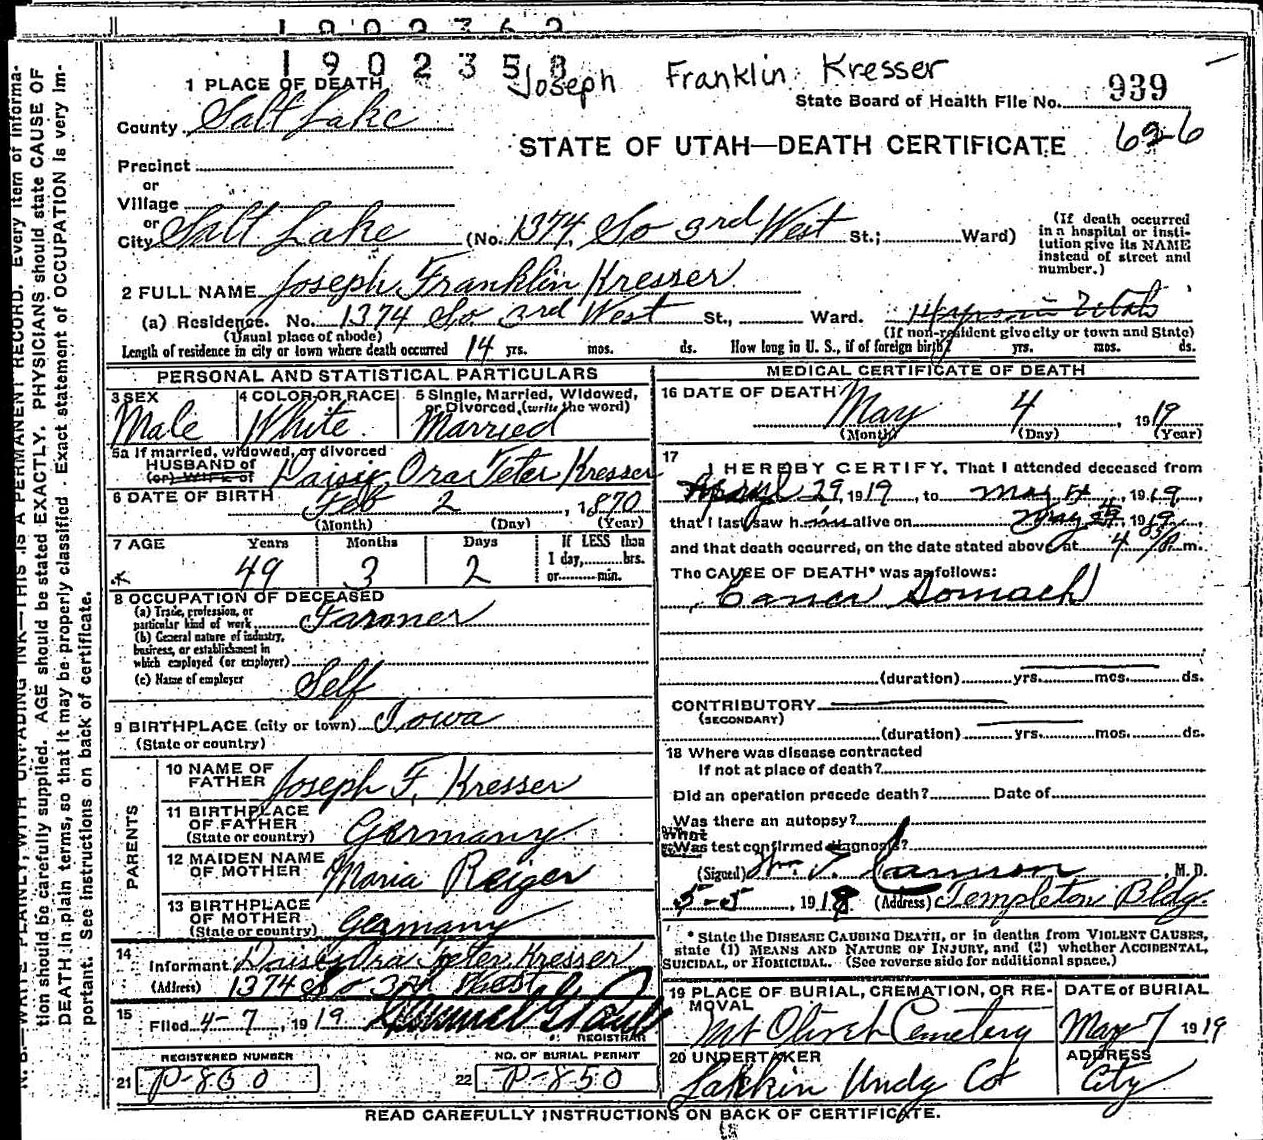 1902358
Joseph Franklin Kresser
1 PLACE OF DEATH
State Board of Health File No. 939
County Salt Lake
626
STATE OF UTAH—DEATH CERTIFICATE
Precinct
or
Village
or
City Salt Lake (No. 1374 So 3rd West St.; Ward)
(If death occurred in a hospital or institution give its NAME instead of street and number.)
2 FULL NAME Joseph Franklin Kresser
(a) Residence. No. 1374 So 3rd West St., Ward.
(Usual place of abode) (If non-resident give city or town and State)
Length of residence in city or town where death occurred 14 yrs. mos. ds. How long in U. S., if of foreign birth? yrs. mos. ds.
PERSONAL AND STATISTICAL PARTICULARS
3 SEX Male
4 COLOR OR RACE White
5 Single, Married, Widowed, or Divorced, (write the word) Married
5a If married, widowed, or divorced
HUSBAND of
(or) WIFE of Daisy Ora Teter Kresser
6 DATE OF BIRTH Feb 2, 1870
(Month) (Day) (Year)
7 AGE Years Months Days If LESS than
1 day, hrs.
or min.
49 3 2
8 OCCUPATION OF DECEASED
(a) Trade, profession, or particular kind of work Farmer
(b) General nature of industry, business, or establishment in which employed (or employer)
(c) Name of employer Self
9 BIRTHPLACE (city or town) Iowa
(State or country)
PARENTS
10 NAME OF FATHER Joseph F. Kresser
11 BIRTHPLACE OF FATHER (State or country) Germany
12 MAIDEN NAME OF MOTHER Maria Reiger
13 BIRTHPLACE OF MOTHER (State or country) Germany
14 Informant Daisy Ora Teter Kresser
(Address) 1374 So 3rd West
15 Filed 4-7, 1919
REGISTRAR
REGISTERED NUMBER
21 P-850
NO. OF BURIAL PERMIT
22 P-850
MEDICAL CERTIFICATE OF DEATH
16 DATE OF DEATH May 4, 1919
(Month) (Day) (Year)
17 I HEREBY CERTIFY, That I attended deceased from
April 29, 1919, to May 4, 1919,
that I last saw him alive on May 4, 1919,
and that death occurred, on the date stated above, at 4 P. m.
The CAUSE OF DEATH* was as follows:
Cancer Stomach
(duration) yrs. mos. ds.
CONTRIBUTORY
(SECONDARY)
(duration) yrs. mos. ds.
18 Where was disease contracted
If not at place of death?
Did an operation precede death? Date of
Was there an autopsy?
What test confirmed diagnosis?
(Signed) Wm. T. Cannon M. D.
5-5, 1918 (Address) Templeton Bldg.
* State the DISEASE CAUSING DEATH, or in deaths from VIOLENT CAUSES,
state (1) MEANS AND NATURE OF INJURY, and (2) whether ACCIDENTAL,
SUICIDAL, or HOMICIDAL. (See reverse side for additional space.)
19 PLACE OF BURIAL, CREMATION, OR REMOVAL
Mt Olivet Cemetery
DATE OF BURIAL
May 7 1919
20 UNDERTAKER
Larkin Undg Co
ADDRESS
City
READ CAREFULLY INSTRUCTIONS ON BACK OF CERTIFICATE.
N. B.—WRITE PLAINLY, WITH UNFADING INK—THIS IS A PERMANENT RECORD. Every item of informa-
tion should be carefully supplied. AGE should be stated EXACTLY. PHYSICIANS should state CAUSE OF
DEATH in plain terms, so that it may be properly classified. Exact statement of OCCUPATION is very im-
portant. See instructions on back of certificate.